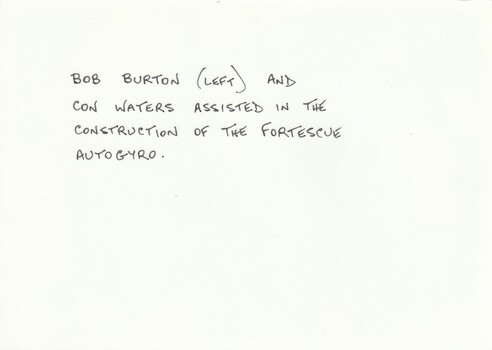 BOB BURTON (LEFT) AND
CON WATERS ASSISTED IN THE
CONSTRUCTION OF THE FORTESCUE
AUTOGYRO.